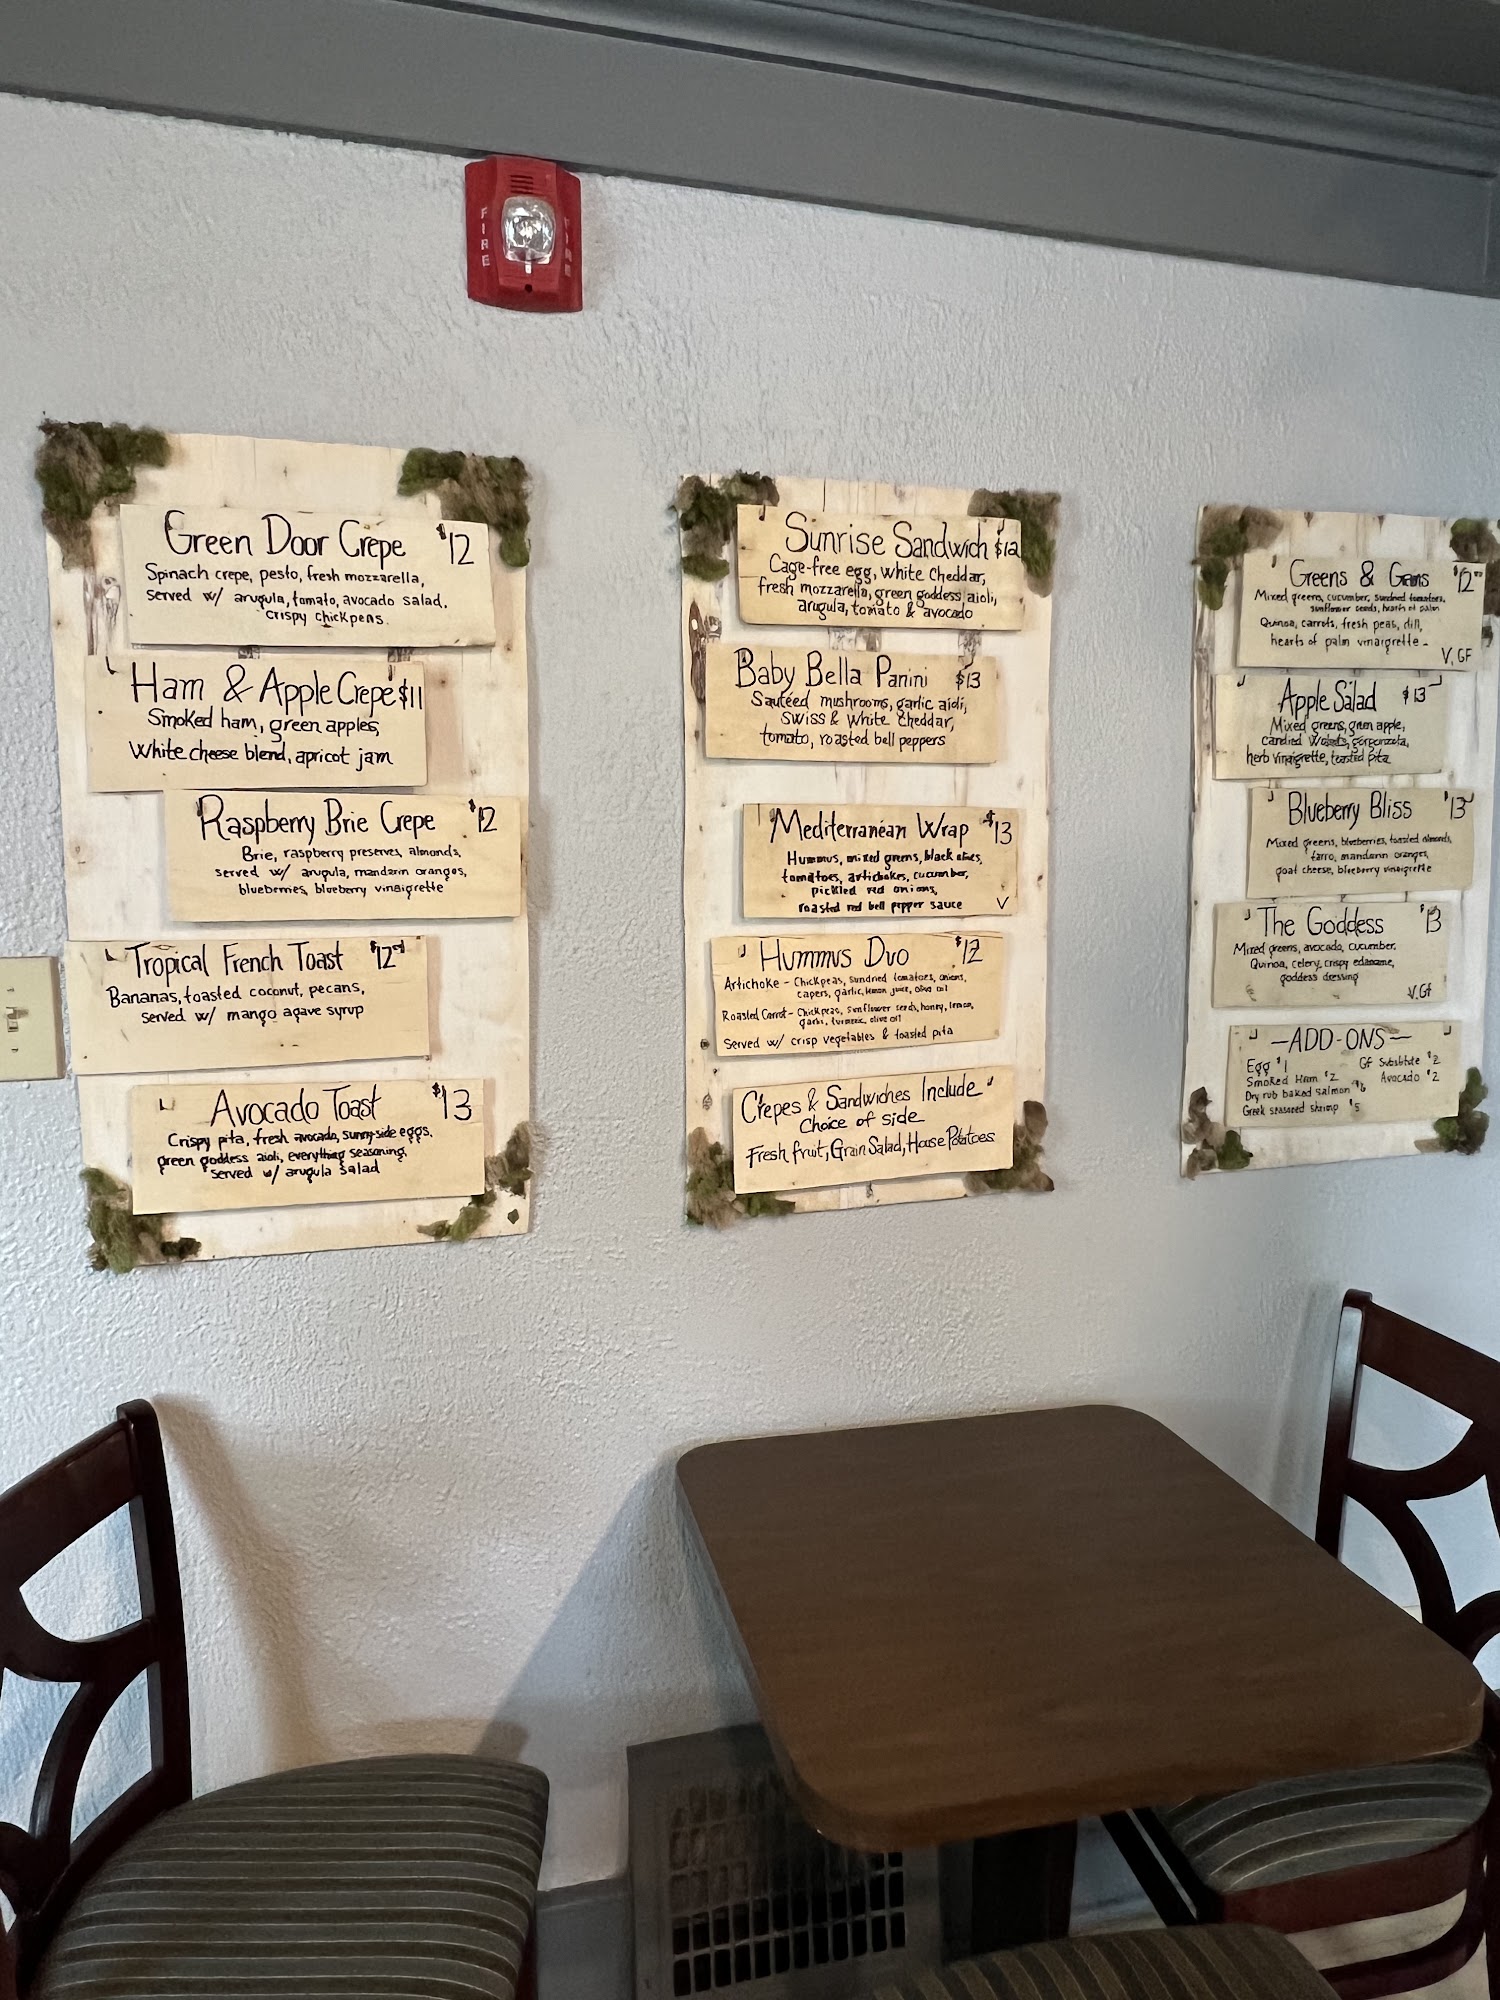 FIRE
FIRE
Green Door Crepe $12
Spinach crepe, pesto, fresh mozzarella,
served w/ arugula, tomato, avocado salad,
crispy chickpeas.
Ham & Apple Crepe $11
Smoked ham, green apples,
White cheese blend, apricot jam
Raspberry Brie Crepe $12
Brie, raspberry preserves, almonds,
served w/ arugula, mandarin oranges,
blueberries, blueberry vinaigrette
Tropical French Toast $12
Bananas, toasted coconut, pecans,
served w/ mango agave syrup
Avocado Toast $13
Crispy pita, fresh avocado, sunny-side eggs,
green goddess aioli, everything seasoning,
served w/ arugula salad
Sunrise Sandwich $12
Cage-free egg, white cheddar,
fresh mozzarella, green goddess aioli,
arugula, tomato & avocado
Baby Bella Panini $13
Sautéed mushrooms, garlic aioli,
Swiss & White Cheddar,
tomato, roasted bell peppers
Mediterranean Wrap $13
Hummus, mixed greens, black olives,
tomatoes, artichokes, cucumber,
pickled red onions,
roasted red bell pepper sauce V
Hummus Duo $12
Artichoke - Chickpeas, sundried tomatoes, onions,
capers, garlic, lemon juice, olive oil
Roasted Carrot - Chickpeas, sunflower seeds, honey, lemon,
garlic, turmeric, olive oil
Served w/ crisp vegetables & toasted pita
Crepes & Sandwiches Include
Choice of side
Fresh fruit, Grain Salad, House Potatoes
Greens & Grains $12
Mixed greens, cucumber, sundried tomatoes,
sunflower seeds, hearts of palm
Quinoa, carrots, fresh peas, dill,
hearts of palm vinaigrette -
V, GF
Apple Salad $13
Mixed greens, green apple,
candied Walnuts, gorgonzola,
herb vinaigrette, toasted pita
Blueberry Bliss $13
Mixed greens, blueberries, toasted almonds,
farro, mandarin oranges,
goat cheese, blueberry vinaigrette
The Goddess $13
Mixed greens, avocado, cucumber,
Quinoa, celery, crispy edamame,
goddess dressing
V, Gf
-ADD-ONS-
Egg $1 GF Substitute $2
Smoked Ham $2 Avocado $2
Dry rub baked salmon $6
Greek seasoned shrimp $5